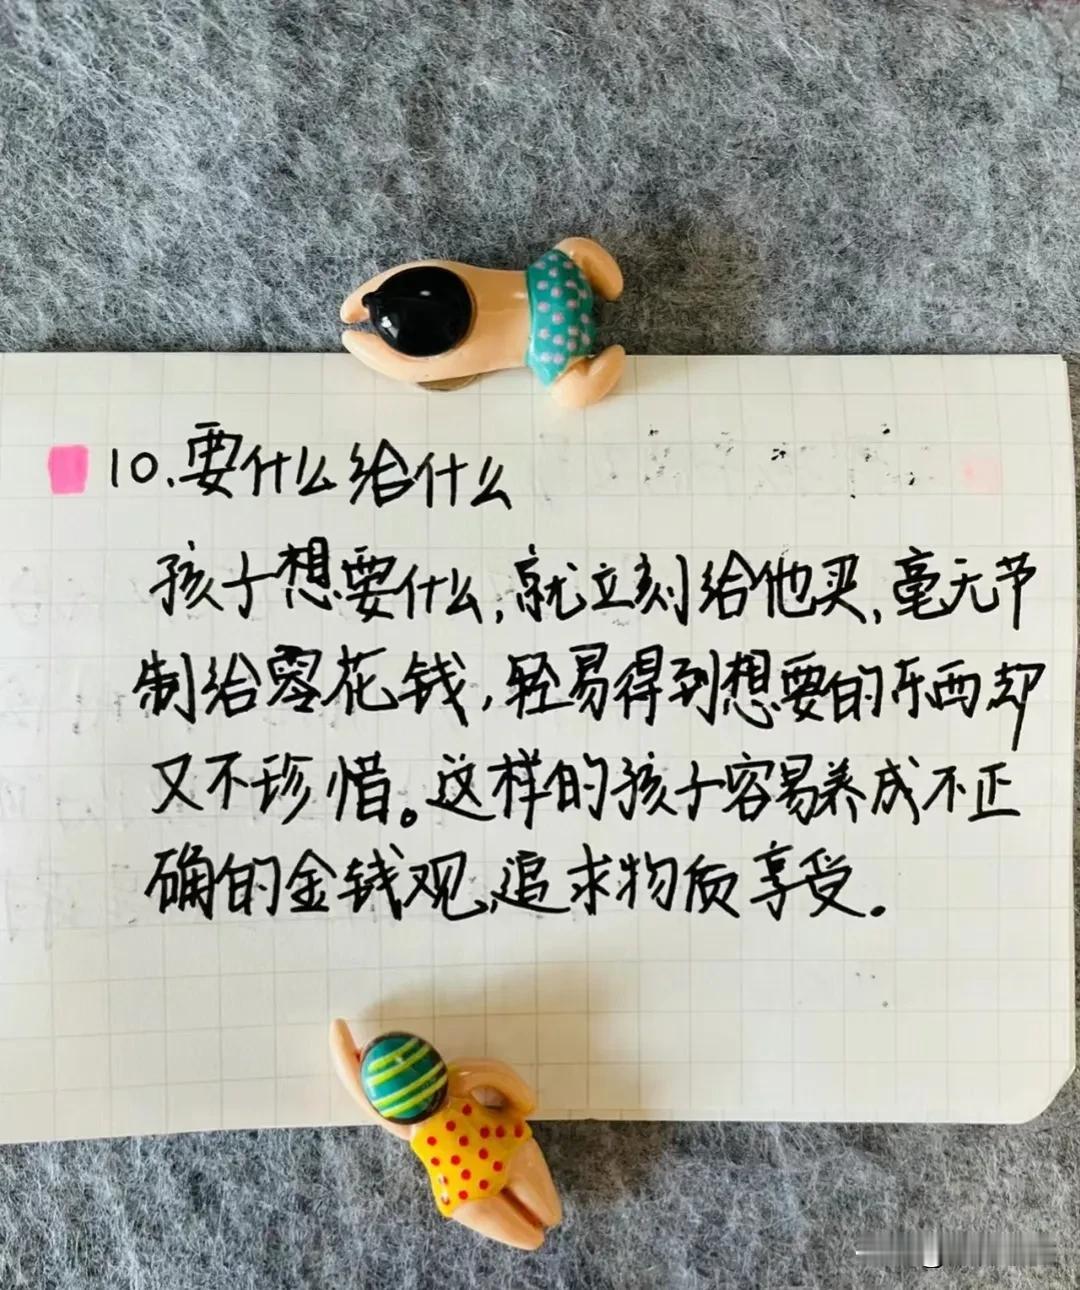 10.要什么给什么
孩子想要什么,就立刻给他买,毫无节
制给零花钱,轻易得到想要的东西却
又不珍惜。这样的孩子容易养成不正
确的金钱观,追求物质享受。